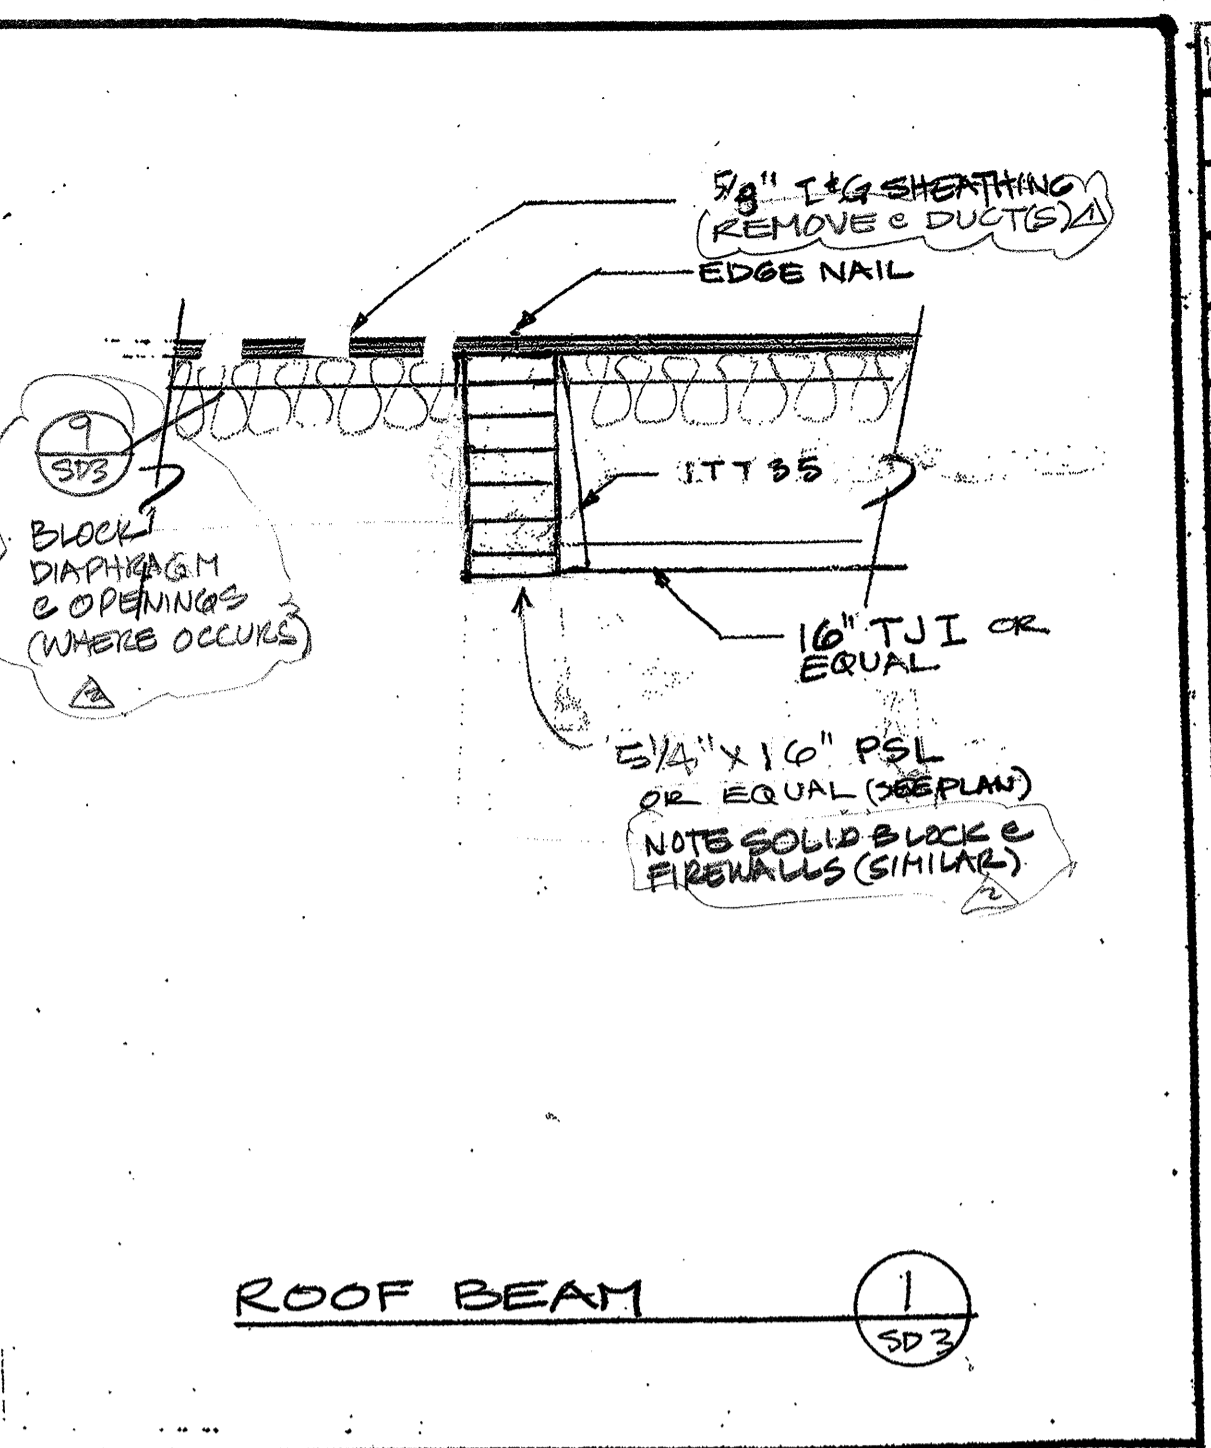 5/8" T&G SHEATHING
(REMOVE @ DUCT(S) 1
EDGE NAIL
9
SD3
ITT 35
BLOCK
DIAPHRAGM
@ OPENINGS
(WHERE OCCURS)
2
16" TJI OR
EQUAL
5 1/4" X 16" PSL
OR EQUAL (SEE PLAN)
NOTE SOLID BLOCK @
FIREWALLS (SIMILAR)
2
ROOF BEAM
1
SD3